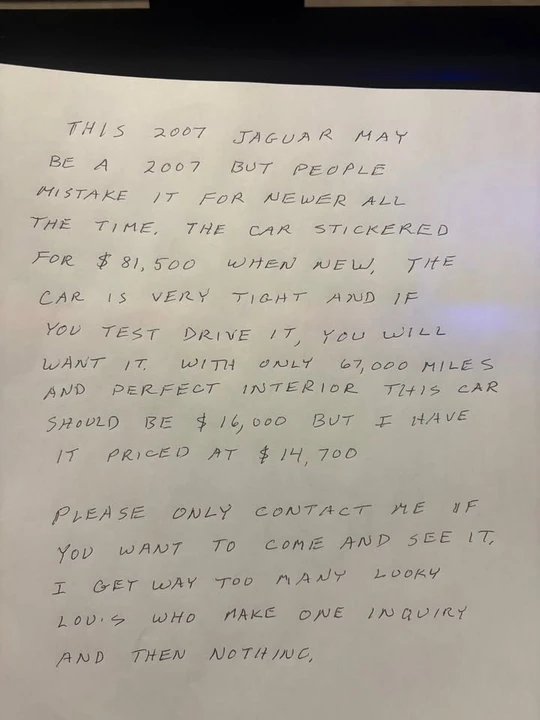 THIS 2007 JAGUAR MAY
BE A 2007 BUT PEOPLE
MISTAKE IT FOR NEWER ALL
THE TIME. THE CAR STICKERED
FOR $81,500 WHEN NEW, THE
CAR IS VERY TIGHT AND IF
YOU TEST DRIVE IT, YOU WILL
WANT IT. WITH ONLY 67,000 MILES
AND PERFECT INTERIOR THIS CAR
SHOULD BE $16,000 BUT I HAVE
IT PRICED AT $14,700
PLEASE ONLY CONTACT ME IF
YOU WANT TO COME AND SEE IT,
I GET WAY TOO MANY LOOKY
LOU'S WHO MAKE ONE INQUIRY
AND THEN NOTHING,